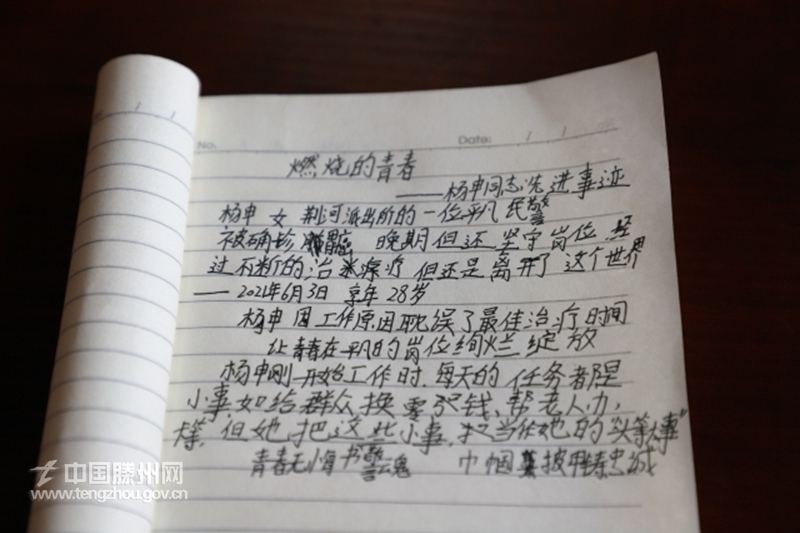 No.
Date: / /
燃烧的青春
——杨申同志先进事迹
杨申 女 荆河派出所的一位平凡民警
被确诊 癌 晚期但还坚守岗位 经
过不断的治 疗 但还是离开了这个世界
——2021年6月3日 享年28岁
杨申因工作原因耽误了最佳治疗时间
让青春在平凡的岗位绚烂绽放
杨申刚开始工作时,每天的任务都是
小事,如给群众换零 钱、帮老人办,
等,但她把这些小事, 当作她的"头等大事"
青春无悔书警魂 巾帼 披甲铸忠诚
中国滕州网
www.tengzhou.gov.cn